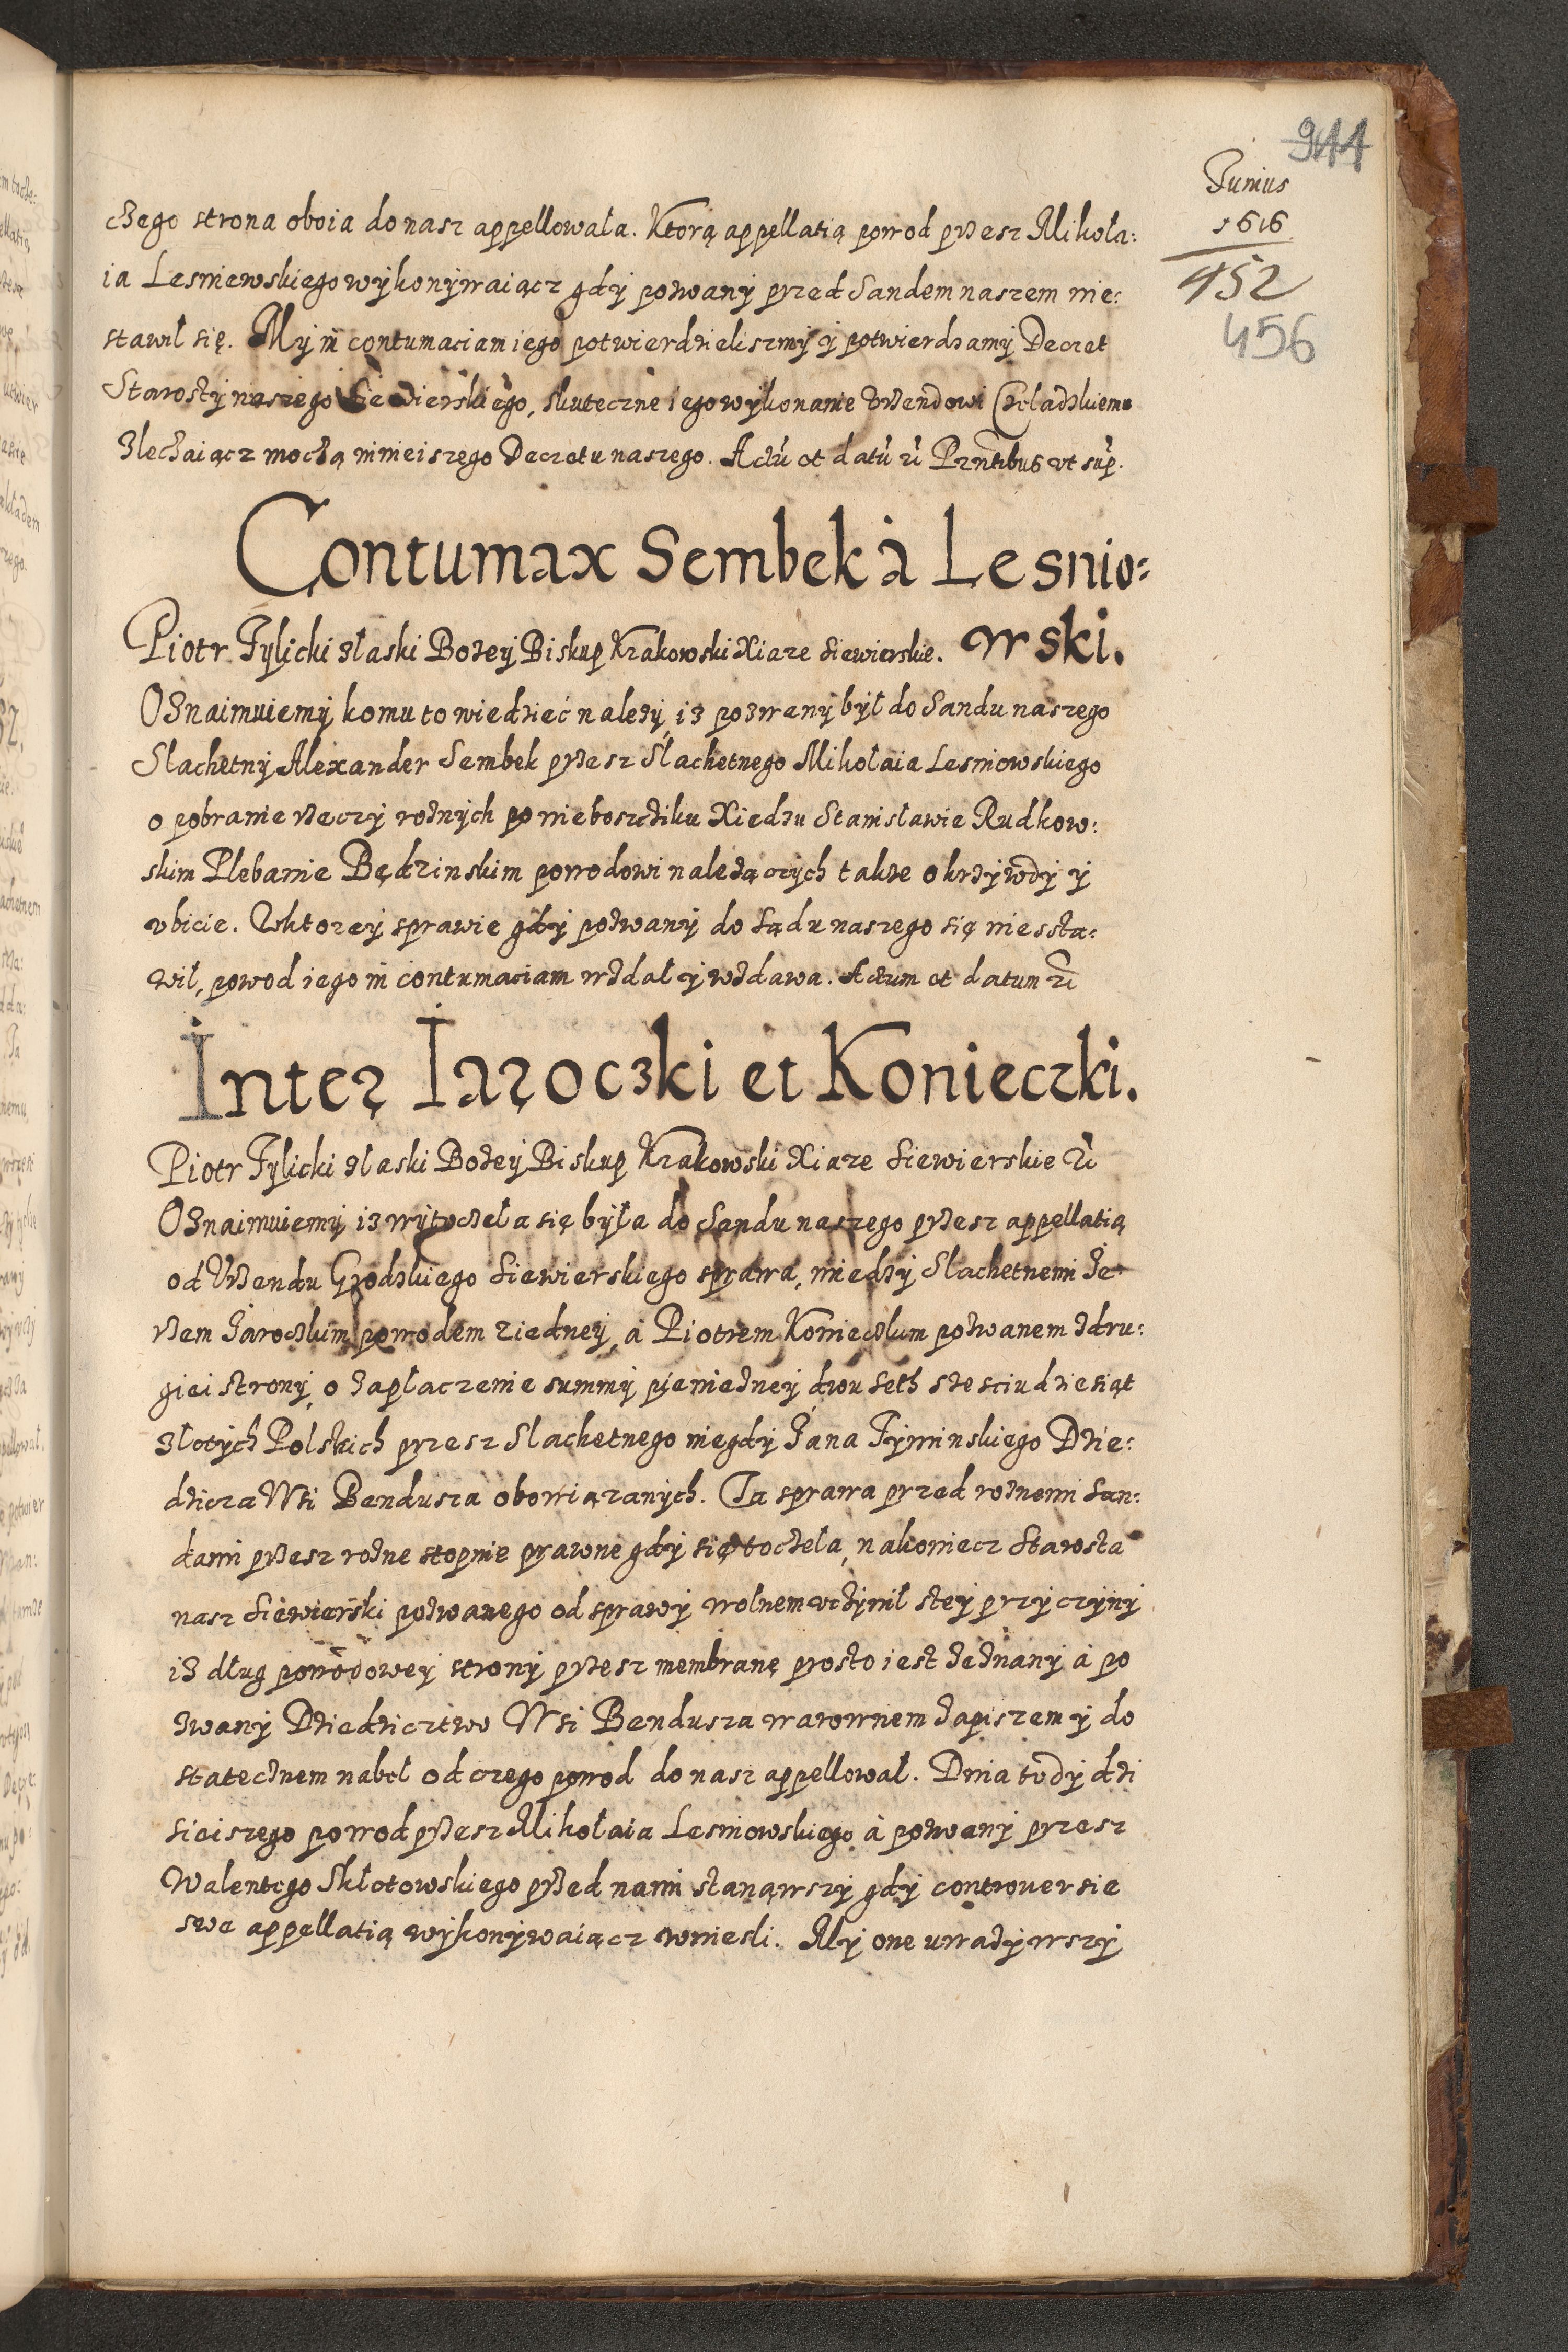 944
Junius
1616
452
456
czego strona oboia do nasz appellowała. Ktorą appellatią powod przesz Mikoła:
ia Lesniewskiego wykonywaiącz gdy pozwany przed Sandem naszem nie:
stawił się. My in contumaciam iego potwierdzieliszmy y potwierdzamy Decret
Starosty naszego Siewierskiego, skuteczne iego wykonanie Vrzendowi Czeladzkiemu
zlecaiącz moczą ninieiszego Decretu naszego. Actũ et datũ ũ Przntibus vt sup.
Contumax Sembek à Lesnio:
wski.
Piotr Tylicki złaski Bozey Biskup Krakowski Xiaze Siewierskie.
Oznaimuiemy komu to wiedzieć nalezy, iz pozwany był do Sandu naszego
Slachetny Alexander Sembek przesz Slachetnego Mikołaia Lesniowskiego
o pobranie rzeczy roznych po nieboszcziku Xiedzu Stanisławie Rudkow:
skim Plebanie Będzinskim powodowi nalezączych takze o krzywdy y
vbicie. Wktorey sprawie gdy pozwany do Sądu naszego się niessta:
wił, powod iego in contumaciam wzdał y wzdawa. Actum et datum ũ
Inter Iaroczki et Konieczki.
Piotr Tylicki złaski Bozey Biskup Krakowski Xiaze Siewierskie ũ
Oznaimuiemy iz wytoczeła się była do Sandu naszego przesz appellatią
od Vrzendu Grodzkiego Siewierskiego sprawa, miedzy Slachetnemi Je:
rzem Jaroczkim powodem ziedney, a Piotrem Konieczkim pozwanem zdru:
giei strony, o zapłaczenie summy pieniezney dwu seth szesciudziesiąt
złotych Polskich przesz Slachetnego niegdy Jana Tyminskiego Dzie:
dzicza Wsi Bendusza obowiązanych. Ta sprawa przed roznemi San:
dami przesz rozne stopnie prawne gdy się toczeła, nakoniecz Starosta
nasz Siewierski pozwanego od sprawy wolnem vczynił stey przyczyny
iz dług powodowey strony przesz membranę prosto iest zeznany à po
zwany Dziedzicztwo Wsi Bendusza warownem zapiszem y do
statecznem nabeł od czego powod do nasz appellował. Dnia tedy dzi
sieiszego powod przesz Mikołaia Lesniowskiego à pozwany przesz
Walentego Skłotowskiego przed nami stanąwszy gdy controuersie
swe appellatią wykonywaiącz wniesli. My one uwazywszy